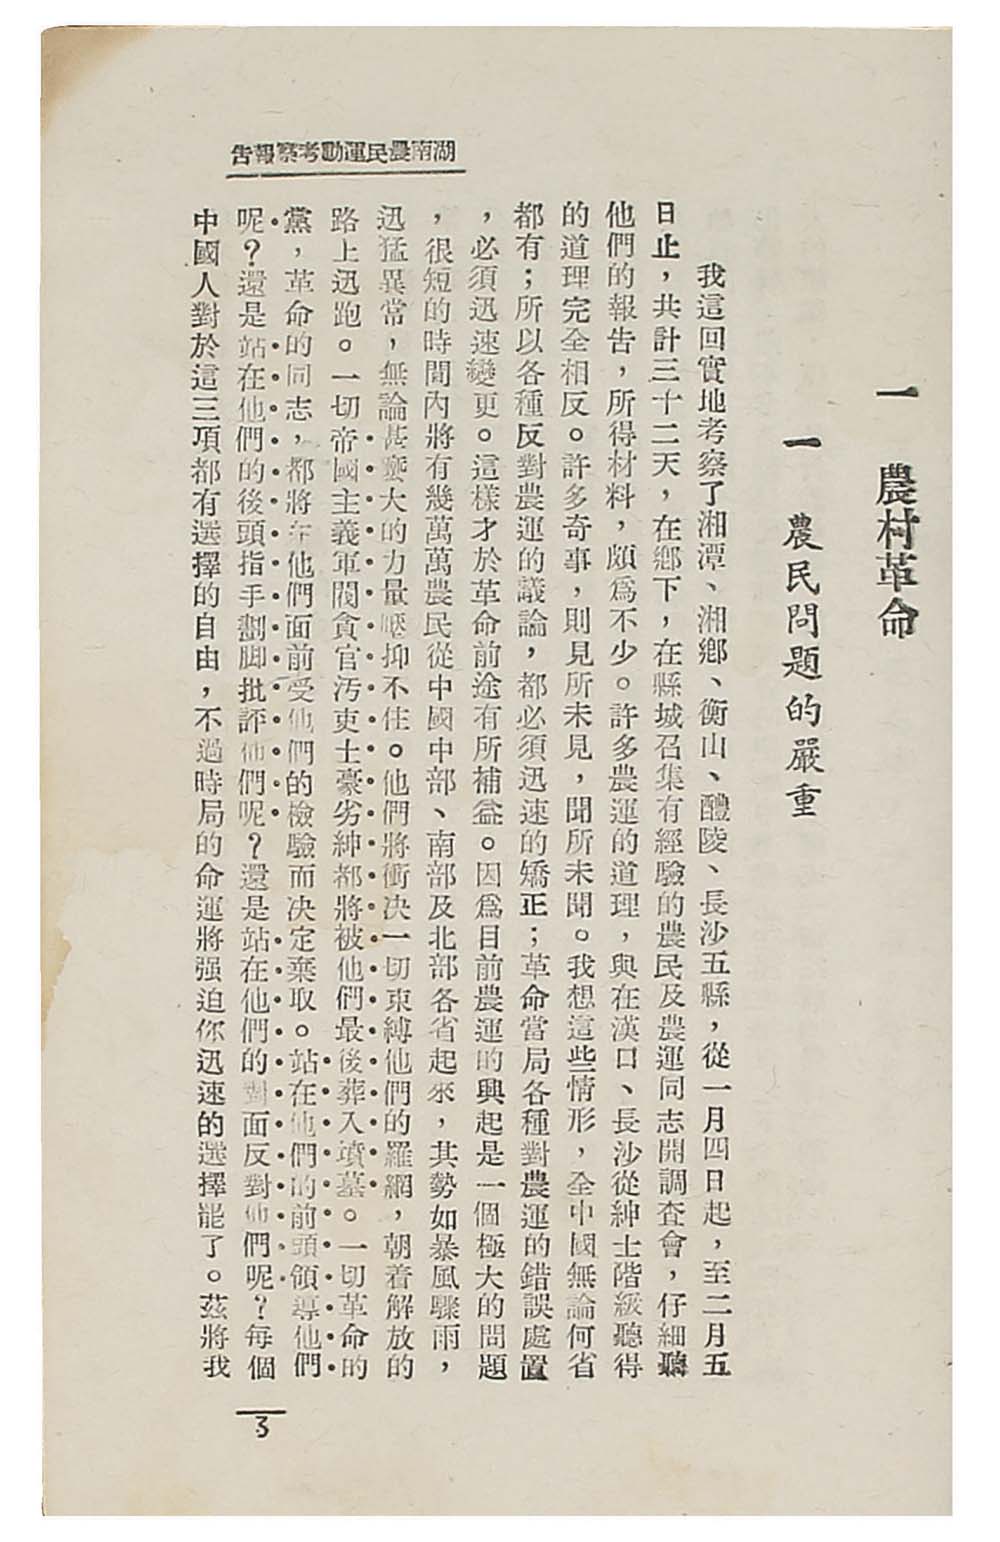 湖南農民運動考察報告
一　農村革命
一　農民問題的嚴重
我這回實地考察了湘潭、湘鄉、衡山、醴陵、長沙五縣，從一月四日起，至二月五
日止，共計三十二天，在鄉下，在縣城召集有經驗的農民及農運同志開調查會，仔細聽
他們的報告，所得材料，頗爲不少。許多農運的道理，與在漢口、長沙從紳士階級聽得
的道理完全相反。許多奇事，則見所未見，聞所未聞。我想這些情形，全中國無論何省
都有；所以各種反對農運的議論，都必須迅速的矯正；革命當局各種對農運的錯誤處置
，必須迅速變更。這樣才於革命前途有所補益。因爲目前農運的興起是一個極大的問題
，很短的時間內將有幾萬萬農民從中國中部、南部及北部各省起來，其勢如暴風驟雨，
迅猛異常，無論甚麼大的力量壓抑不住。他們將衝決一切束縛他們的羅網，朝着解放的
路上迅跑。一切帝國主義軍閥貪官汚吏土豪劣紳都將被他們最後葬入墳墓。一切革命的
黨，革命的同志，都將在他們面前受他們的檢驗而決定棄取。站在他們的前頭領導他們
呢？還是站在他們的後頭指手劃脚批評他們呢？還是站在他們的對面反對他們呢？每個
中國人對於這三項都有選擇的自由，不過時局的命運將强迫你迅速的選擇罷了。茲將我
3